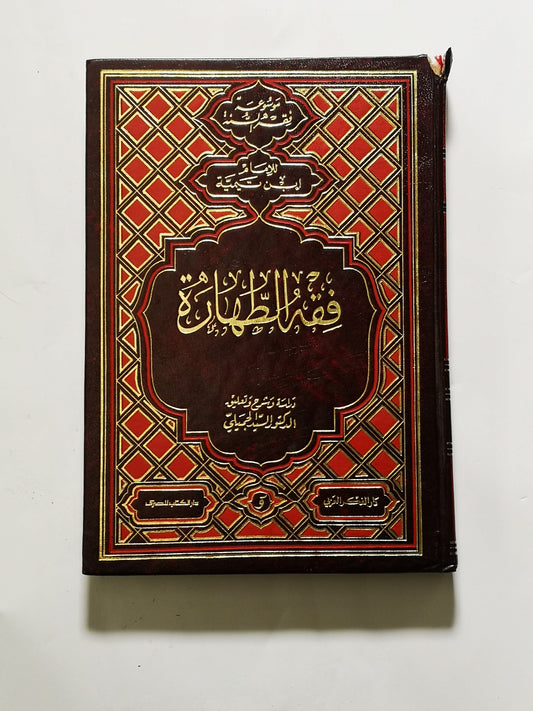 موسوعة
فقه السنة
للإمام
ابن تيمية
فِقْهُ الطَّهَارَة
دراسة وشرح وتعليق
الدكتور السيد الجميلي
دار الفكر العربي
و
دار الكتاب المصري